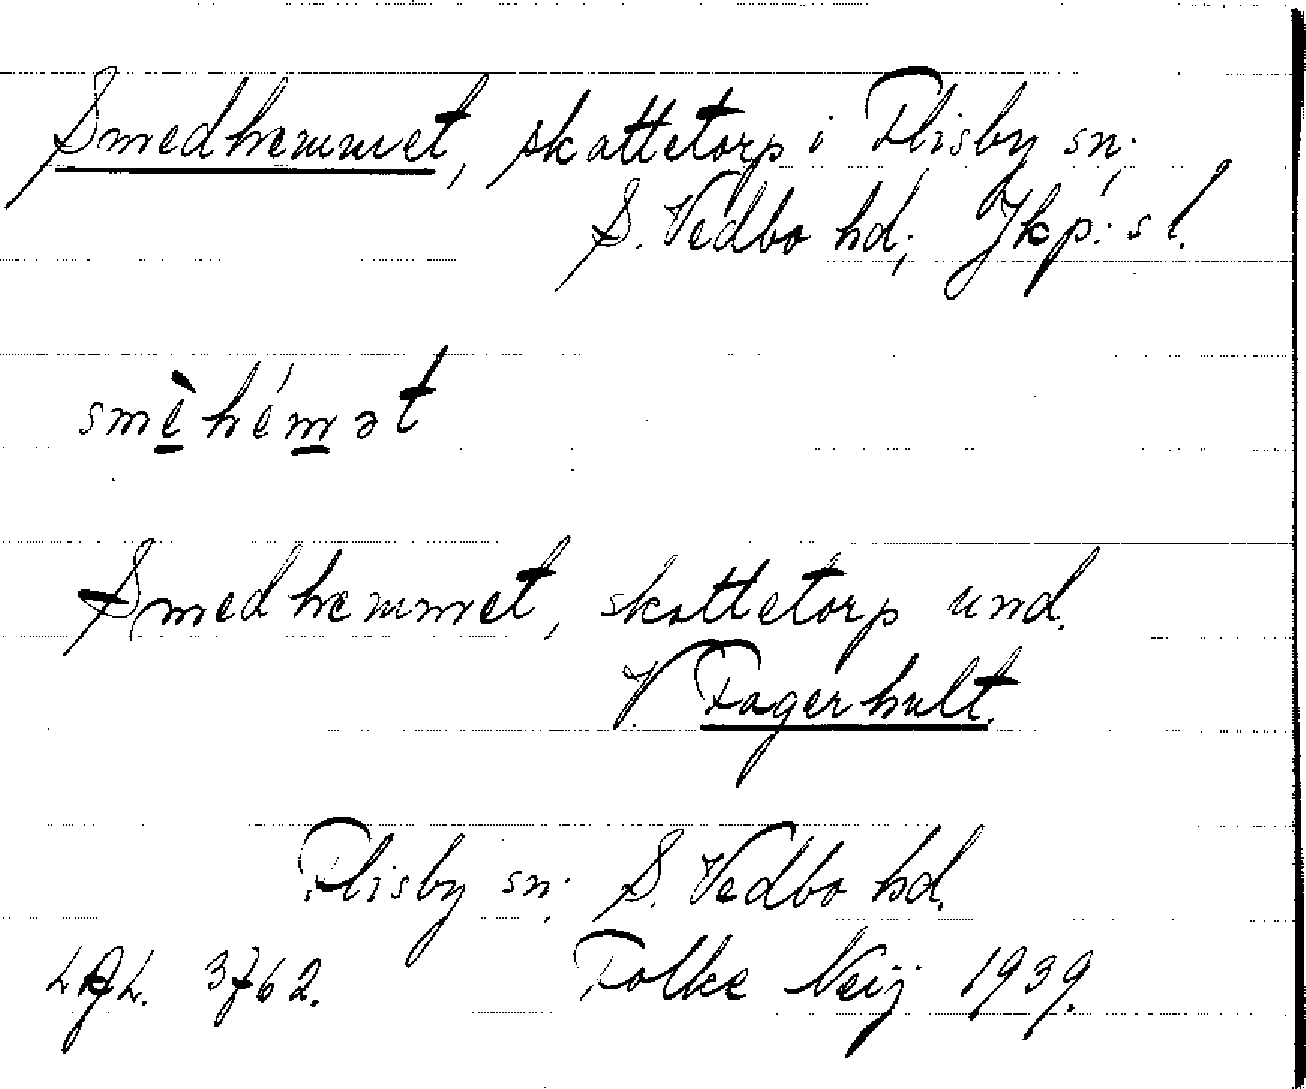 Smedhemmet, skattetorp i Flisby sn;
S. Vedbo hd; Jkp: s l.
smèhémət
Smedhemmet, skattetorp und.
V. Fagerhult.
Flisby sn; S. Vedbo hd.
3762. Folke Neij 1939.